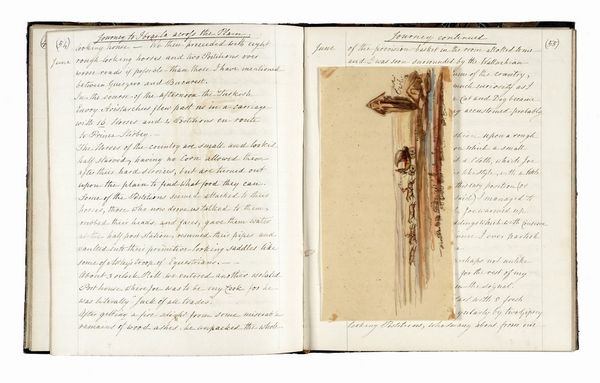 (54)
Journey to Foraila across the Plain
June
looking house — We then proceeded with eight
rough looking horses and two Postilions over
worse roads if possible than those I have mentioned
between Guirgevo and Bucarest.
In the course of the afternoon the Turkish
Envoy Aristarchus flew past us in a carriage
with 16 Horses and 4 Postilions en route
to Prince Stirbey.
The Horses of the country are small and looked
half starved, having no Corn allowed them
after their hard services, but are turned out
upon the plain to find what food they can.
Some of the Postilions seemed attached to their
horses, those who now drove us talked to them
rubbed their heads and faces, gave them water
at the half post Station, resumed their pipes and
vaulted into their primitive looking saddles like
some of Astley's troop of Equestrians. —
About 3 o'clock P.M. we entered another isolated
Post house where Joe was to be my Cook for he
was literally "Jack of all trades".
After getting a fire alight from some miserable
remains of wood ashes, he unpacked the whole
Journey continued
(55)
June
of the provision basket in the room allotted to us
and I was soon surrounded by the Wallachian
of this country,
much curiosity as I
Cat and Dog became
accustomed probably
upon a rough
on which a small
a Cloth, which Joe
style, with a table
position (or
said) I managed to
Joe warmed up
with
I ever partook
perhaps not unlike
for the rest of my
the signal
with 8 fresh
by two Gipsy
looking Postilions, who swung about from one